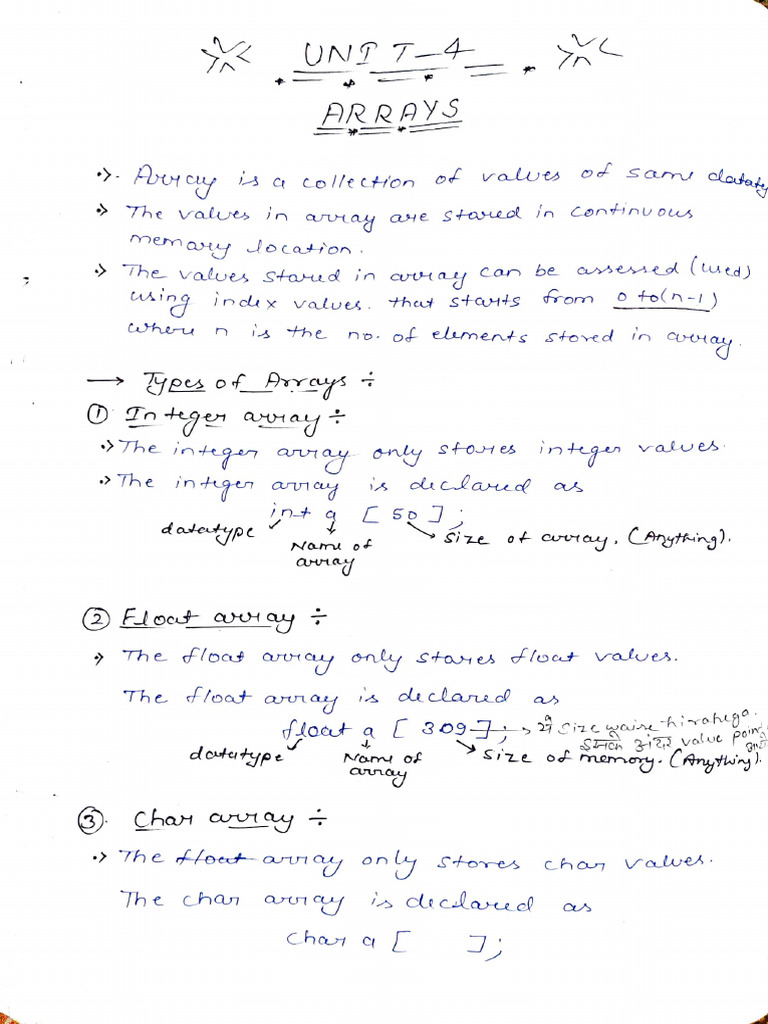 UNIT-4
ARRAYS
Array is a collection of values of same dataty
The values in array are stared in continuous
memary location.
The values stared in array can be assessed (used)
using index values. that starts from 0 to(n-1)
where n is the no. of elements stored in array.
→ Types of Arrays ÷
① Integer array ÷
The integer array only stores integer values.
The integer array is declared as
int a [50];
datatype Name of array Size of array. (Anything).
② Float array ÷
The float array only stares float values.
The float array is declared as
float a [309]; size waise hi rahega.
अंदर value poin
datatype Name of array Size of memory. (Anything).
③ Char array ÷
The float array only stores char values.
The char array is declared as
char a [ ];